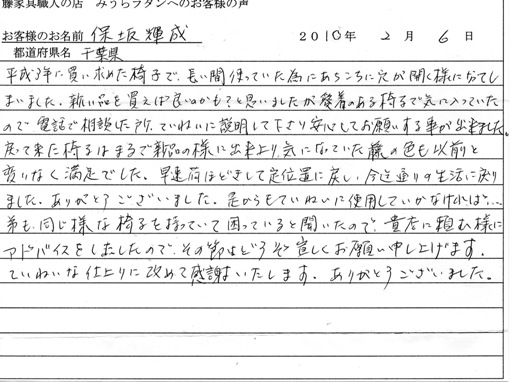 藤家具職人の店 みうらラタンへのお客様の声
お客様のお名前 保坂輝成 2010年 2月 6日
都道府県名 千葉県
平成3年に買い求めた椅子で、長い間使っていた為にあちこちに穴が開く様になってし
まいました。新しい品を買えば良いのかも?と思いましたが愛着のある椅子で気に入っていた
ので電話で相談した所、ていねいに説明して下さり安心してお願いする事が出来ました。
戻って来た椅子はまるで新品の様に出来上り、気になっていた籐の色も以前と
変りなく満足でした。早速荷ほどきして定位置に戻し、今迄通りの生活に戻り
ました。ありがとうございました。これからもていねいに使用していかなければ…
弟も同じ様な椅子を持っていて困っていると聞いたので、貴店に頼む様に
アドバイスをしましたので、その節はどうぞ宜しくお願い申し上げます。
ていねいな仕上りに改めて感謝いたします。ありがとうございました。